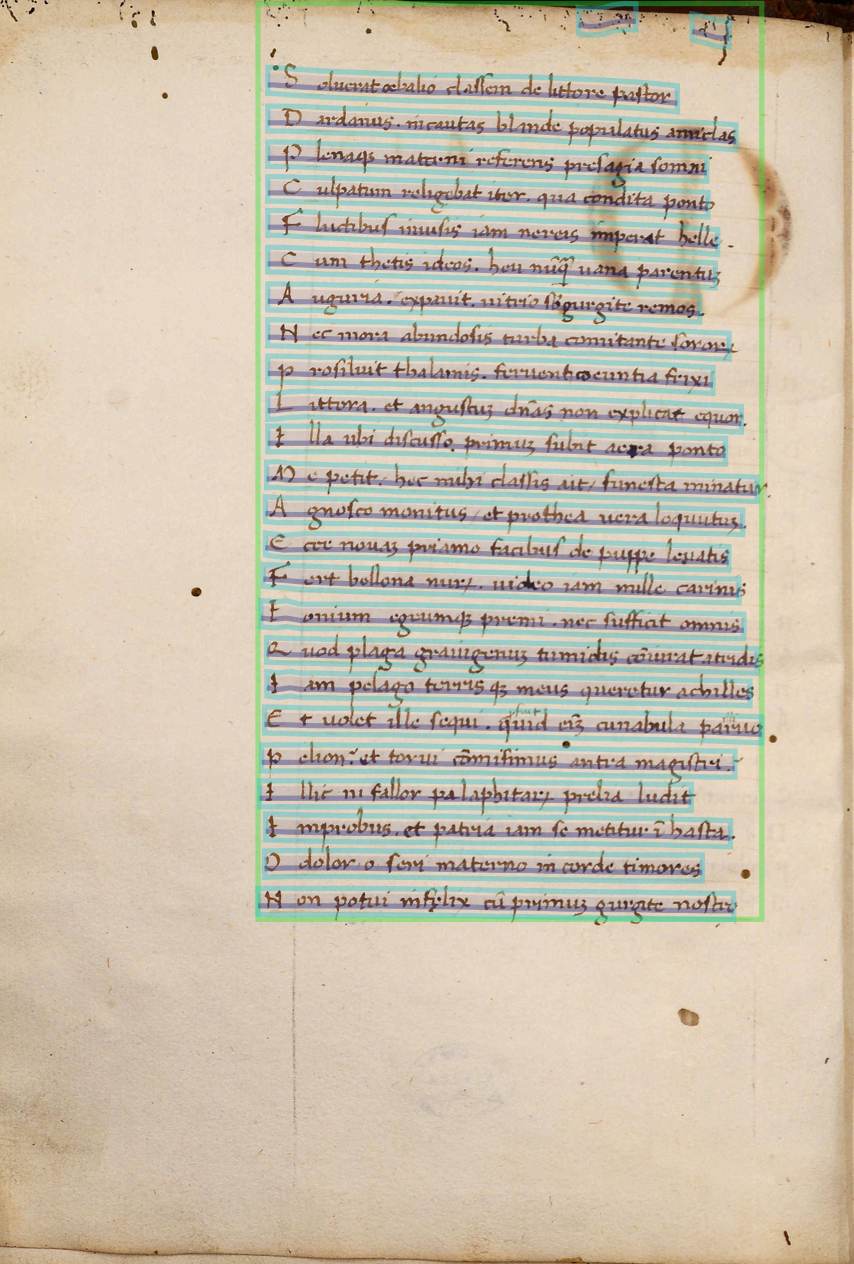 S oluerat oebalio classem de littore pastor
D ardanius. incautas blande populatus amiclas
P lenaqꝫ materni referens presagia somni
C ulpatum religebat iter. qua condita ponto
F luctibus inuisis iam nereis imperat helle.
C um thetis ideos. heu nūqꝫ uana parentuꝫ
A uguria. expauit. uitrio sb̄gurgite remos.
N ec mora abundosis turba comitante sororꝝ
P rosiluit thalamis. feruent coeuntia frixi
L ittora. et angustuꝫ dn̄as non explicat equor.
I lla ubi discusso. primuꝫ subit aera ponto
M e petit. hec mihi classis ait/ funesta minatur.
A gnosco monitus/ et prothea uera loquutuꝫ.
E cce nouaꝫ priamo facibus de puppe leuatis
F ert bellona nurꝝ. video iam mille carinis
I onium egeumqꝫ premi. nec sufficit omnis
Q uod plaga graiugenuꝫ tumidis cōiurat atridis
I am pelago terris qꝫ meus queretur achilles
E t uolet ille sequi. quid em̄ cunabula paruo
P elion. et torui cōmisimus antra magistri.
I llic ni fallor pa laphitarꝝ prelia ludit
I mprobus. et patria iam se metitur ī hasta.
O dolor. o seri materno in corde timores
N on potui infelix cū primuꝫ gurgite nostro